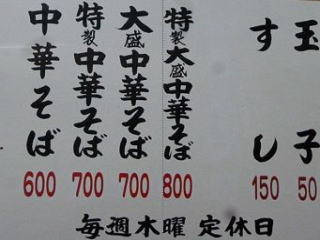 玉子 50
すし 150
特製大盛中華そば 800
大盛中華そば 700
特製中華そば 700
中華そば 600
毎週木曜 定休日